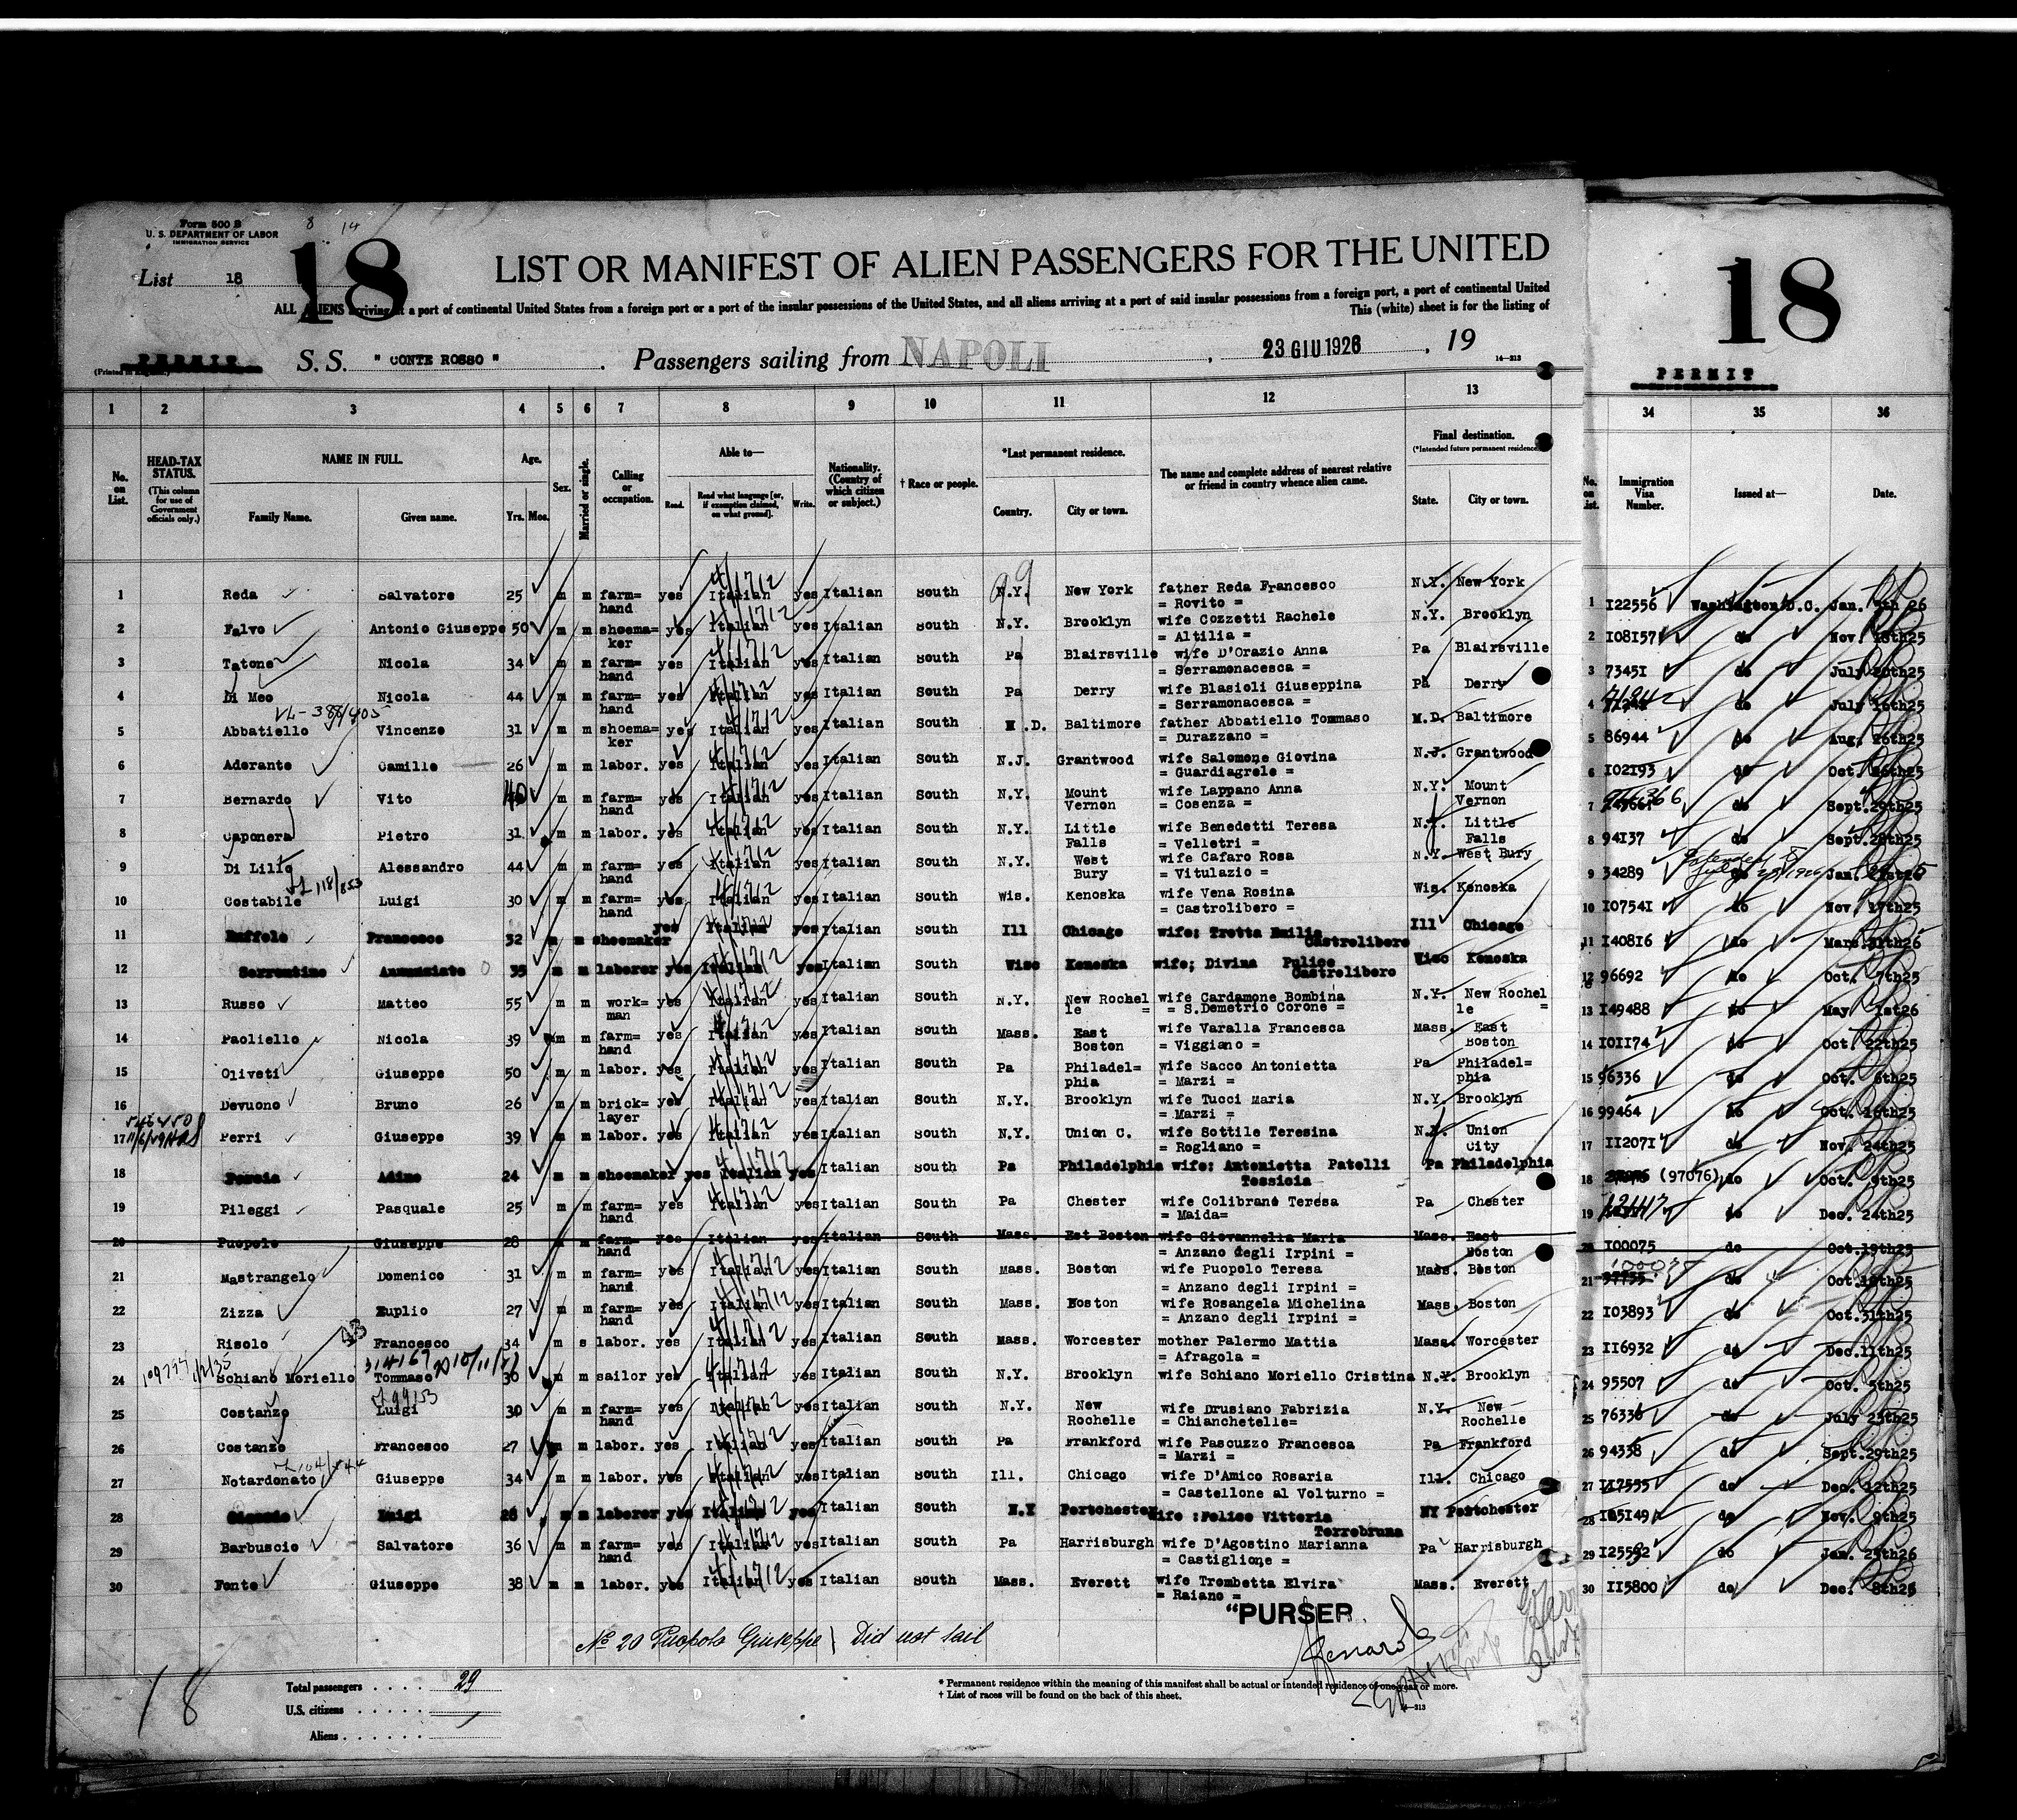 Form 500 B
U. S. DEPARTMENT OF LABOR
IMMIGRATION SERVICE
8 14
List 18
18
LIST OR MANIFEST OF ALIEN PASSENGERS FOR THE UNITED
ALL ALIENS arriving at a port of continental United States from a foreign port or a port of the insular possessions of the United States, and all aliens arriving at a port of said insular possessions from a foreign port, a port of continental United
This (white) sheet is for the listing of
PERMIT S. S. " CONTE ROSSO " . Passengers sailing from NAPOLI , 23 GIU 1926 , 19
14-213
18
PERMIT
1 2 3 4 5 6 7 8 9 10 11 12 13 34 35 36
No. on List.
HEAD-TAX STATUS.
(This column for use of Government officials only.)
NAME IN FULL.
Family Name. Given name.
Age.
Yrs. Mos.
Sex.
Married or single.
Calling or occupation.
Able to—
Read. Read what language [or, if exemption claimed, on what ground]. Write.
Nationality. (Country of which citizen or subject.)
† Race or people.
*Last permanent residence.
Country. City or town.
The name and complete address of nearest relative or friend in country whence alien came.
Final destination.
(*Intended future permanent residence.)
State. City or town.
No. on List.
Immigration Visa Number.
Issued at—
Date.
1 Reda Salvatore 25 m m farm=hand yes Italian yes Italian South N.Y. New York father Reda Francesco = Rovito = N.Y. New York 1 I22556 Washington D.C. Jan. 5th 26
2 Falvo Antonio Giuseppe 50 m m shoema=ker yes Italian yes Italian South N.Y. Brooklyn wife Cozzetti Rachele = Altilia = N.Y. Brooklyn 2 I08157 do Nov. 18th25
3 Tatone Nicola 34 m m farm=hand yes Italian yes Italian South Pa Blairsville wife D'Orazio Anna = Serramonacesca = Pa Blairsville 3 7345I do July 20th25
4 Di Meo Nicola 44 m m farm=hand yes Italian yes Italian South Pa Derry wife Blasioli Giuseppina = Serramonacesca = Pa Derry 4 do July 16th25
5 Abbatiello Vincenzo 31 m m shoema=ker yes Italian yes Italian South M.D. Baltimore father Abbatiello Tommaso = Durazzano = M.D. Baltimore 5 86944 do Aug. 26th25
6 Aderante Camillo 26 m m labor. yes Italian yes Italian South N.J. Grantwood wife Salomone Giovina = Guardiagrele = N.J. Grantwood 6 I02193 do Oct. 26th25
7 Bernardo Vito 40 m m farm=hand yes Italian yes Italian South N.Y. Mount Vernon wife Lappano Anna = Cosenza = N.Y. Mount Vernon 7 do Sept.29th25
8 Caponera Pietro 31 m m labor. yes Italian yes Italian South N.Y. Little Falls wife Benedetti Teresa = Velletri = N.Y. Little Falls 8 94I37 do Sept.28th25
9 Di Lillo Alessandro 44 m m farm=hand yes Italian yes Italian South N.Y. West Bury wife Cafaro Rosa = Vitulazio = N.Y. West Bury 9 34289 do Jan. 21st25
10 Costabile Luigi 30 m m farm=hand yes Italian yes Italian South Wis. Kenoska wife Vena Rosina = Castrolibero = Wis. Kenoska 10 I0754I do Nov. 17th25
11 Ruffolo Francesco 32 m m shoemaker yes Italian yes Italian South Ill Chicago wife: Trotta Emilia Castrolibero Ill Chicago 11 I408I6 do Mars.31th26
12 Sorrentino Annunziato 35 m m laborer yes Italian yes Italian South Wisc Kenoska wife; Divina Police Castrolibero Wisc Kenoska 12 96692 do Oct. 7th25
13 Russo Matteo 55 m m work=man yes Italian yes Italian South N.Y. New Rochelle = wife Cardamone Bombina = S.Demetrio Corone = N.Y. New Rochelle = 13 I49488 do May 1st26
14 Paoliello Nicola 39 m m farm=hand yes Italian yes Italian South Mass. East Boston wife Varalla Francesca = Viggiano = Mass. East Boston 14 I0II74 do Oct. 22th25
15 Oliveti Giuseppe 50 m m labor. yes Italian yes Italian South Pa Philadel=phia wife Sacco Antonietta = Marzi = Pa Philadel=phia 15 96336 do Oct. 6th25
16 Devuono Bruno 26 m m brick=layer yes Italian yes Italian South N.Y. Brooklyn wife Tucci Maria = Marzi = N.Y. Brooklyn 16 99464 do Oct. 16th25
17 Perri Giuseppe 39 m m labor. yes Italian yes Italian South N.Y. Union C. wife Sottile Teresina = Rogliano = N.Y. Union City 17 II207I do Nov. 24th25
18 Porcia Adimo 24 m m shoemaker yes Italian yes Italian South Pa Philadelphia wife: Antonietta Patelli Tessicia Pa Philadelphia 18 (97076) do Oct. 9th25
19 Pileggi Pasquale 25 m m farm=hand yes Italian yes Italian South Pa Chester wife Colibrano Teresa = Maida= Pa Chester 19 do Dec. 24th25
20 Puopolo Giuseppe 28 m m farm=hand yes Italian yes Italian South Mass. Est Boston wife Giovannella Maria = Anzano degli Irpini = Mass. East Boston 20 I00075 do Oct.19th25
21 Mastrangelo Domenico 31 m m farm=hand yes Italian yes Italian South Mass. Boston wife Puopolo Teresa = Anzano degli Irpini = Mass. Boston 21 do Oct.19th25
22 Zizza Euplio 27 m m farm=hand yes Italian yes Italian South Mass. Boston wife Rosangela Michelina = Anzano degli Irpini = Mass. Boston 22 I03893 do Oct.31th25
23 Risolo Francesco 34 m s labor. yes Italian yes Italian South Mass. Worcester mother Palermo Mattia = Afragola = Mass. Worcester 23 II6932 do Dec.11th25
24 Schiano Moriello Tommaso 30 m m sailor yes Italian yes Italian South N.Y. Brooklyn wife Schiano Moriello Cristina N.Y. Brooklyn 24 95507 do Oct. 5th25
25 Costanzo Luigi 30 m m farm=hand yes Italian yes Italian South N.Y. New Rochelle wife Drusiano Fabrizia = Chianchetelle= N.Y. New Rochelle 25 76336 do July 23th25
26 Costanzo Francesco 27 m m labor. yes Italian yes Italian South Pa Frankford wife Pascuzzo Francesca = Marzi = Pa Frankford 26 94338 do Sept.29th25
27 Notardonato Giuseppe 34 m m labor. yes Italian yes Italian South Ill. Chicago wife D'Amico Rosaria = Castellone al Volturno = Ill. Chicago 27 II7555 do Dec. 12th25
28 Luigi 28 m m laborer yes Italian yes Italian South N.Y Portchester wife :Felice Vittoria Torrebruna NY Portchester 28 I05149 do Nov. 9th25
29 Barbuscio Salvatore 36 m m farm=hand yes Italian yes Italian South Pa Harrisburgh wife D'Agostino Marianna = Castiglione = Pa Harrisburgh 29 I25592 do Jan. 25th26
30 Fonte Giuseppe 38 m m labor. yes Italian yes Italian South Mass. Everett wife Trombetta Elvira = Raiano = Mass. Everett 30 II5800 do Dec. 8th25
"PURSER
No 20 Puopolo Giuseppe \ Did not sail
18
Total passengers . . . . 29
U.S. citizens . . . . .
Aliens . . . . . .
* Permanent residence within the meaning of this manifest shall be actual or intended residence of one year or more.
† List of races will be found on the back of this sheet.
14-213